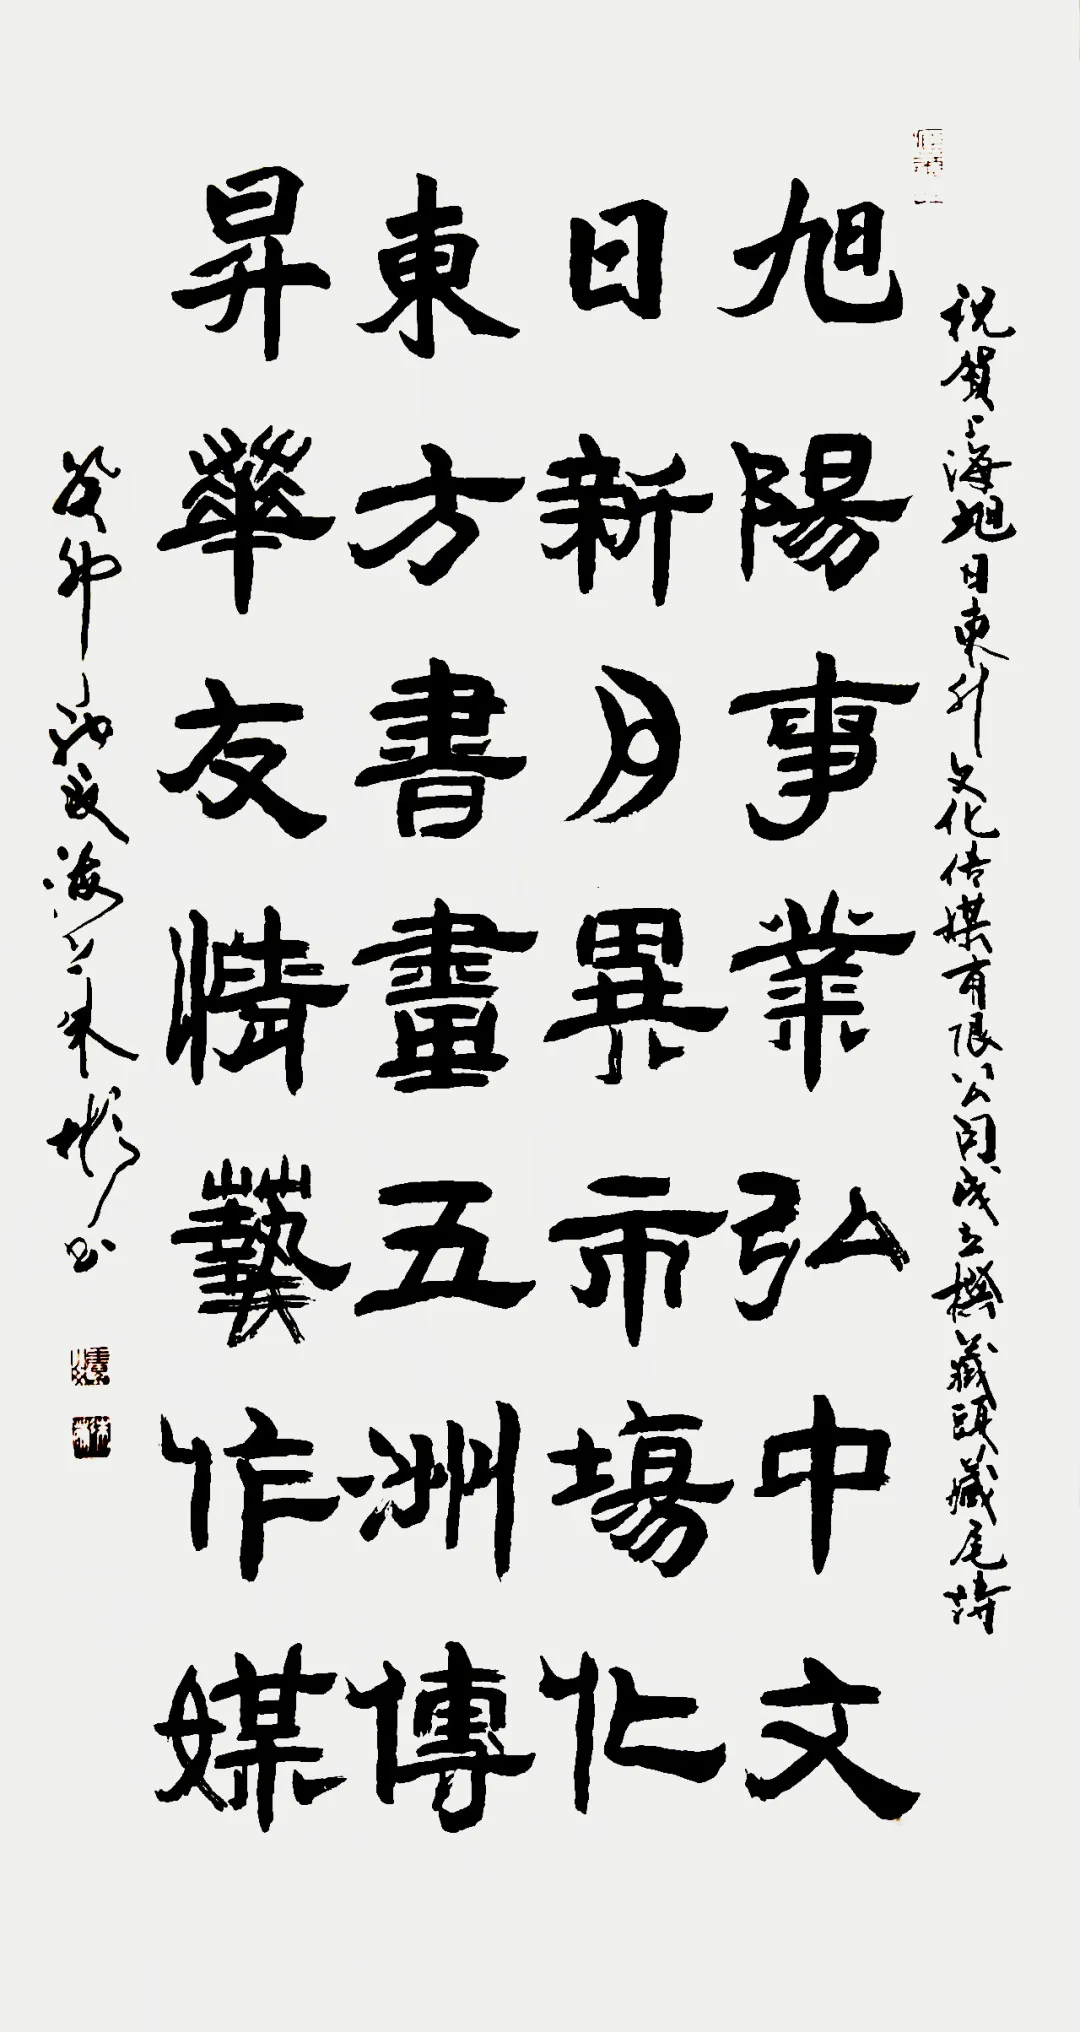 祝賀上海旭日東升文化传媒有限公司成立撰藏頭藏尾詩
旭陽事業弘中文
日新月異市場化
東方書畫五洲傳
昇華友情藝作媒
癸卯
朱彬书